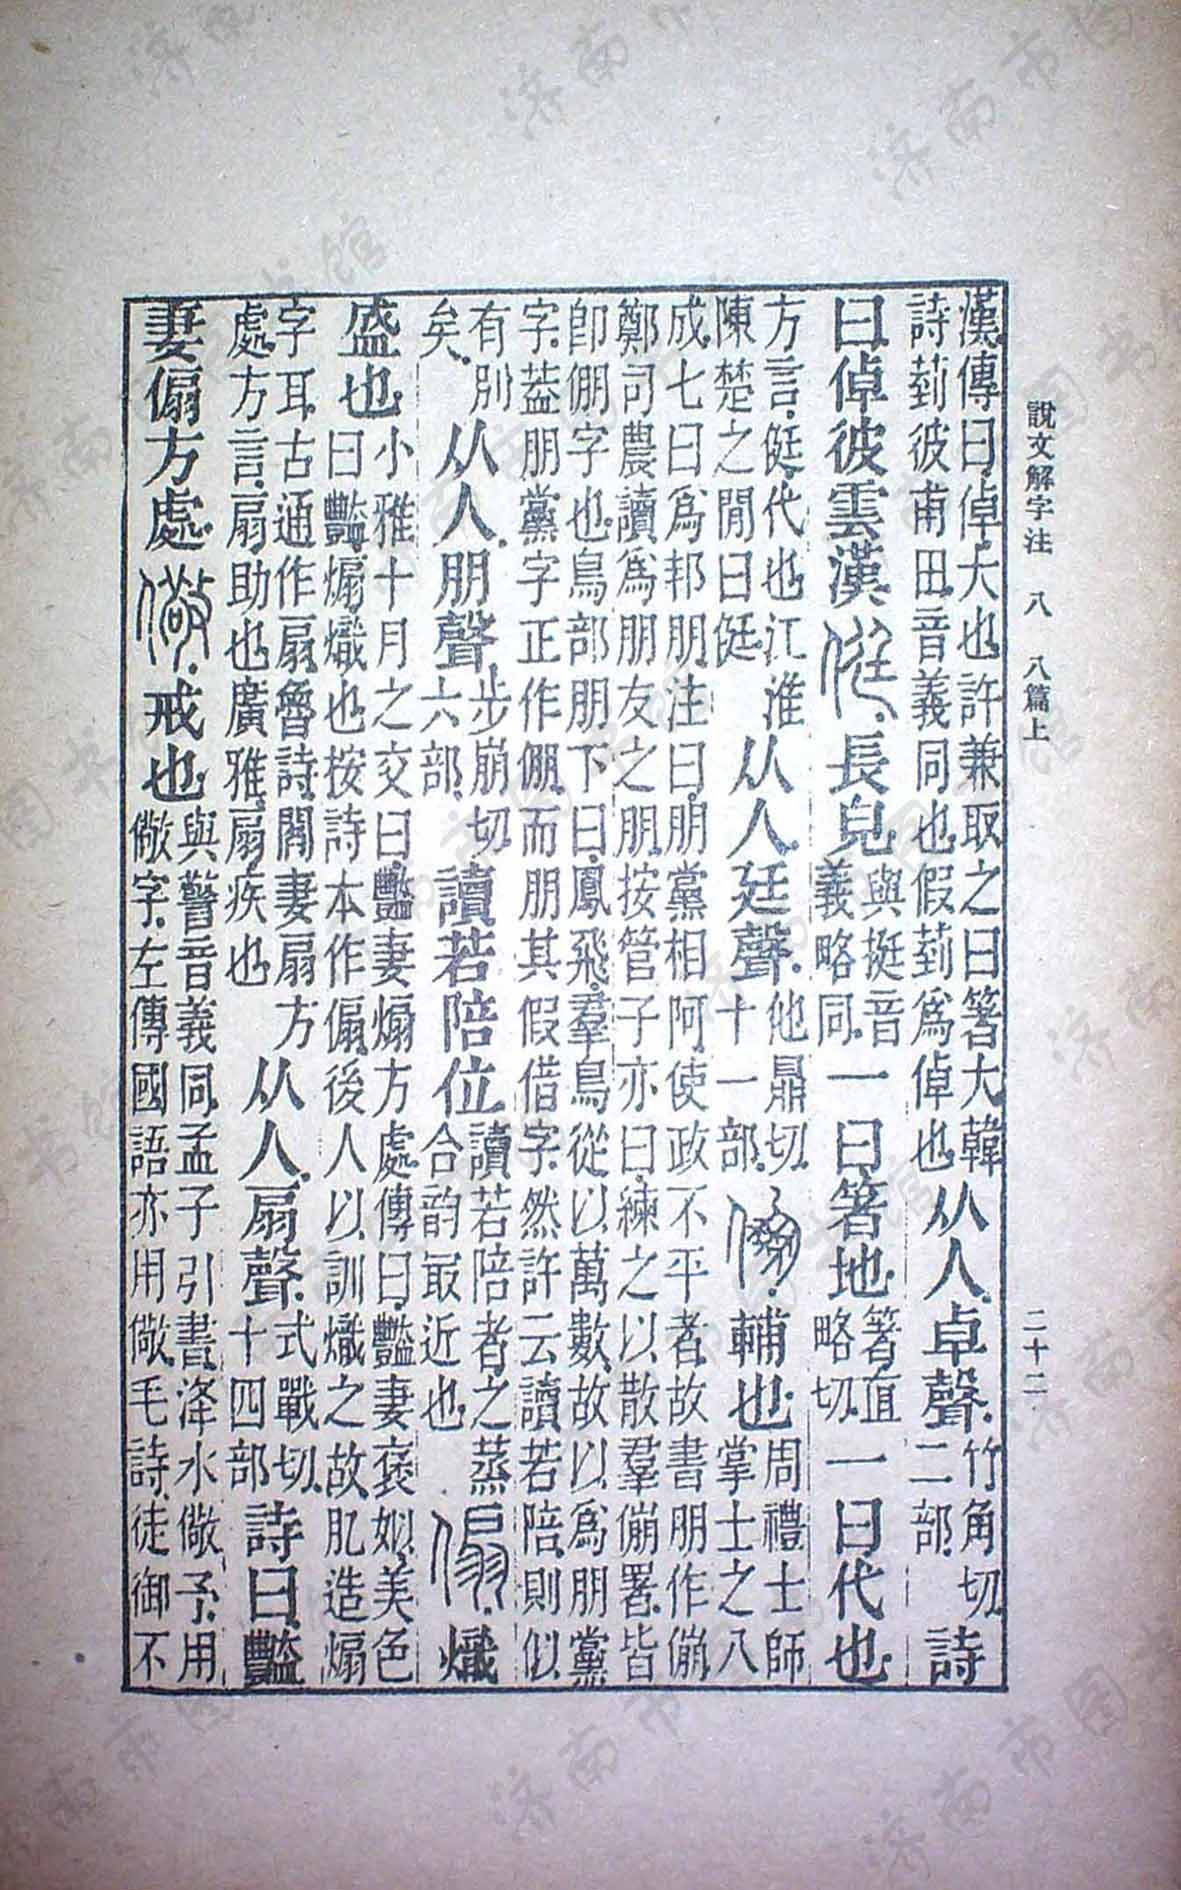 說文解字注 八 八篇上 二十二
漢傳曰倬大也許兼取之曰箸大韓詩菿彼甫田音義同也假菿爲倬也从人卓聲竹角切二部詩
曰倬彼雲漢侹長皃與挺音義略同一曰箸地箸直略切一曰代也
方言侹代也江淮陳楚之閒曰侹从人廷聲他鼎切十一部倗輔也周禮士師掌士之八
成七曰爲邦朋注曰朋黨相阿使政不平者故書朋作傰鄭司農讀爲朋友之朋按管子亦曰練之以散羣傰署皆
卽倗字也鳥部朋下曰鳳飛羣鳥從以萬數故以爲朋黨字葢朋黨字正作倗而朋其假借字然許云讀若陪則似
有別矣从人朋聲步崩切六部讀若陪位讀若陪者之蒸合韵冣近也傓熾
盛也小雅十月之交曰豔妻煽方處傳曰豔妻褒姒美色曰豔煽熾也按詩本作傓後人以訓熾之故肊造煽
字耳古通作扇魯詩閻妻扇方處方言扇助也廣雅扇疾也从人扇聲式戰切十四部詩曰豔
妻傓方處儆戒也與警音義同孟子引書洚水儆予用儆字左傳國語亦用儆毛詩徒御不
济南市图书馆